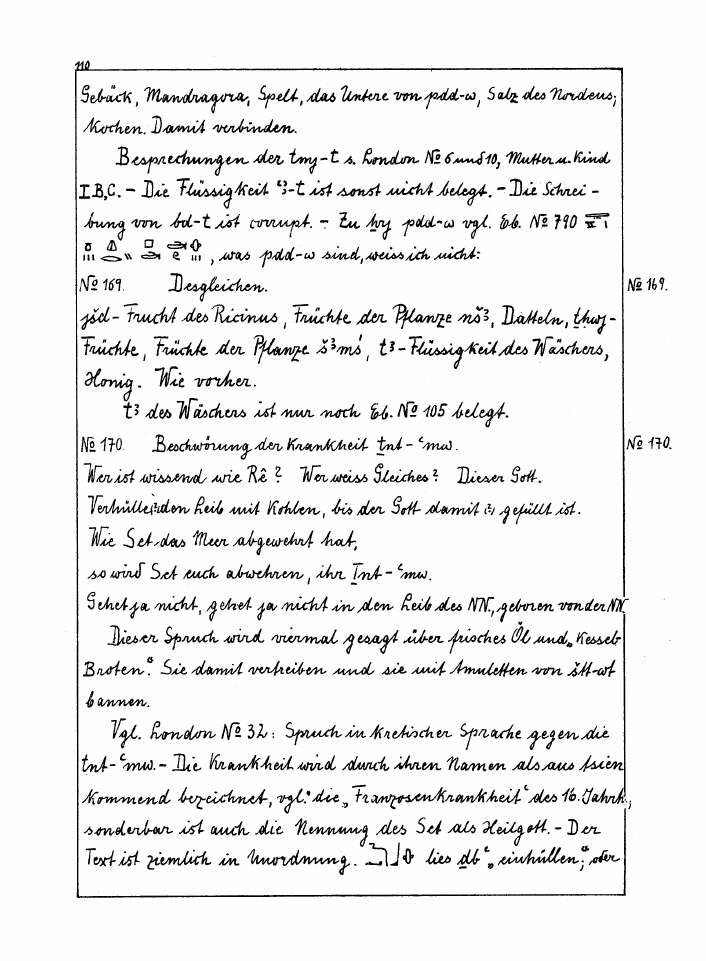 110
Gebäck, Mandragora, Spelt, das Untere von pdd-w, Salz des Nordens;
Kochen. Damit verbinden.
Besprechungen der tmj-t s. London № 6 und 10, Mutter u. Kind
I.B,C. – Die Flüssigkeit ꜥꜣ-t ist sonst nicht belegt. – Die Schrei-
bung von bd-t ist corrupt. – Zu ẖrj pdd-w vgl. Eb. № 790
, was pdd-w sind, weiss ich nicht:
№ 169. Desgleichen. № 169.
jšd-Frucht des Ricinus, Früchte der Pflanze nšꜣ, Datteln, ṯhwj-
Früchte, Früchte der Pflanze šꜣmś, tꜣ-Flüssigkeit des Wäschers,
Honig. Wie vorher.
tꜣ des Wäschers ist nur noch Eb. № 105 belegt.
№ 170. Beschwörung der Krankheit ṯnt-ꜥmw. № 170.
Wer ist wissend wie Rê? Wer weiss Gleiches? Dieser Gott.
Verhülle den Leib mit Kohlen, bis der Gott damit gefüllt ist.
Wie Set das Meer abgewehrt hat,
so wird Set euch abwehren, ihr Ṯnt-ꜥmw.
Gehet ja nicht, gehet ja nicht in den Leib des NN., geboren von der NN.
Dieser Spruch wird viermal gesagt über frisches Öl und „Kessel-
Broten“. Sie damit vertreiben und sie mit Amuletten von štt-wt
bannen.
Vgl. London № 32: Spruch in Kretischer Sprache gegen die
tnt-ꜥmw. – Die Krankheit wird durch ihren Namen als aus Asien
kommend bezeichnet, vgl. die „Franzosenkrankheit“ des 16. Jahrh.;
sonderbar ist auch die Nennung des Set als Heilgott. – Der
Text ist ziemlich in Unordnung. lies ḏbꜥ „einhüllen“; oder